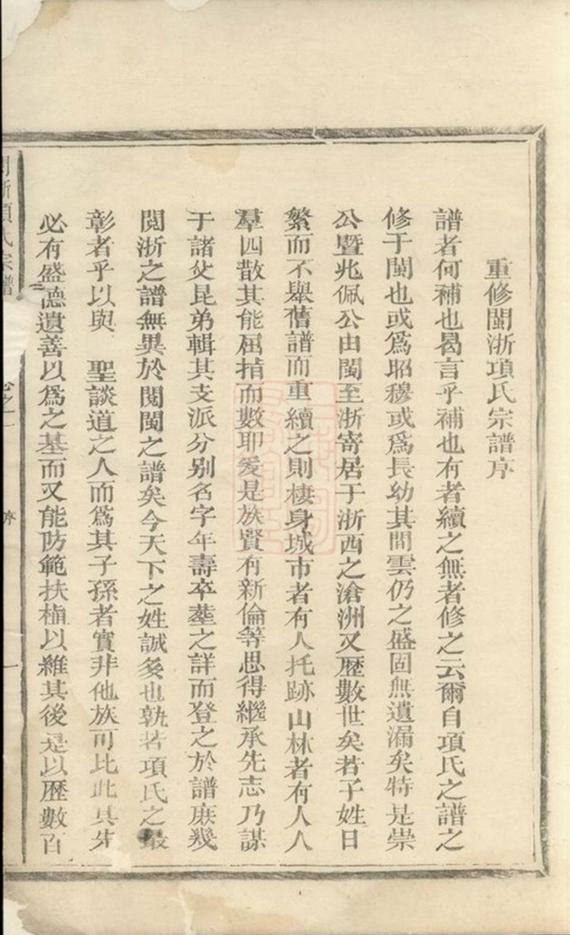 重修閩浙項氏宗譜序
譜者何補也曷言乎補也有者續之無者修之云爾自項氏之譜之
修于閩也或爲昭穆或爲長幼其間雲仍之盛固無遺漏矣特是崇
公暨兆佩公由閩至浙寄居于浙西之滄洲又歷數世矣若子姓日
繁而不舉舊譜而重續之則棲身城市者有人托跡山林者有人人
羣四散其能屈指而數耶爰是族賢有新倫等思得繼承先志乃謀
于諸父昆弟輯其支派分别名字年壽卒塟之詳而登之於譜庶幾
閱浙之譜無異於閱閩之譜矣今天下之姓誠多也孰若項氏之最
彰者乎以與 聖談道之人而爲其子孫者實非他族可比此其先
必有盛德遺善以爲之基而又能防範扶植以維其後是以歷數百
浙項氏宗譜 卷之一 序 一